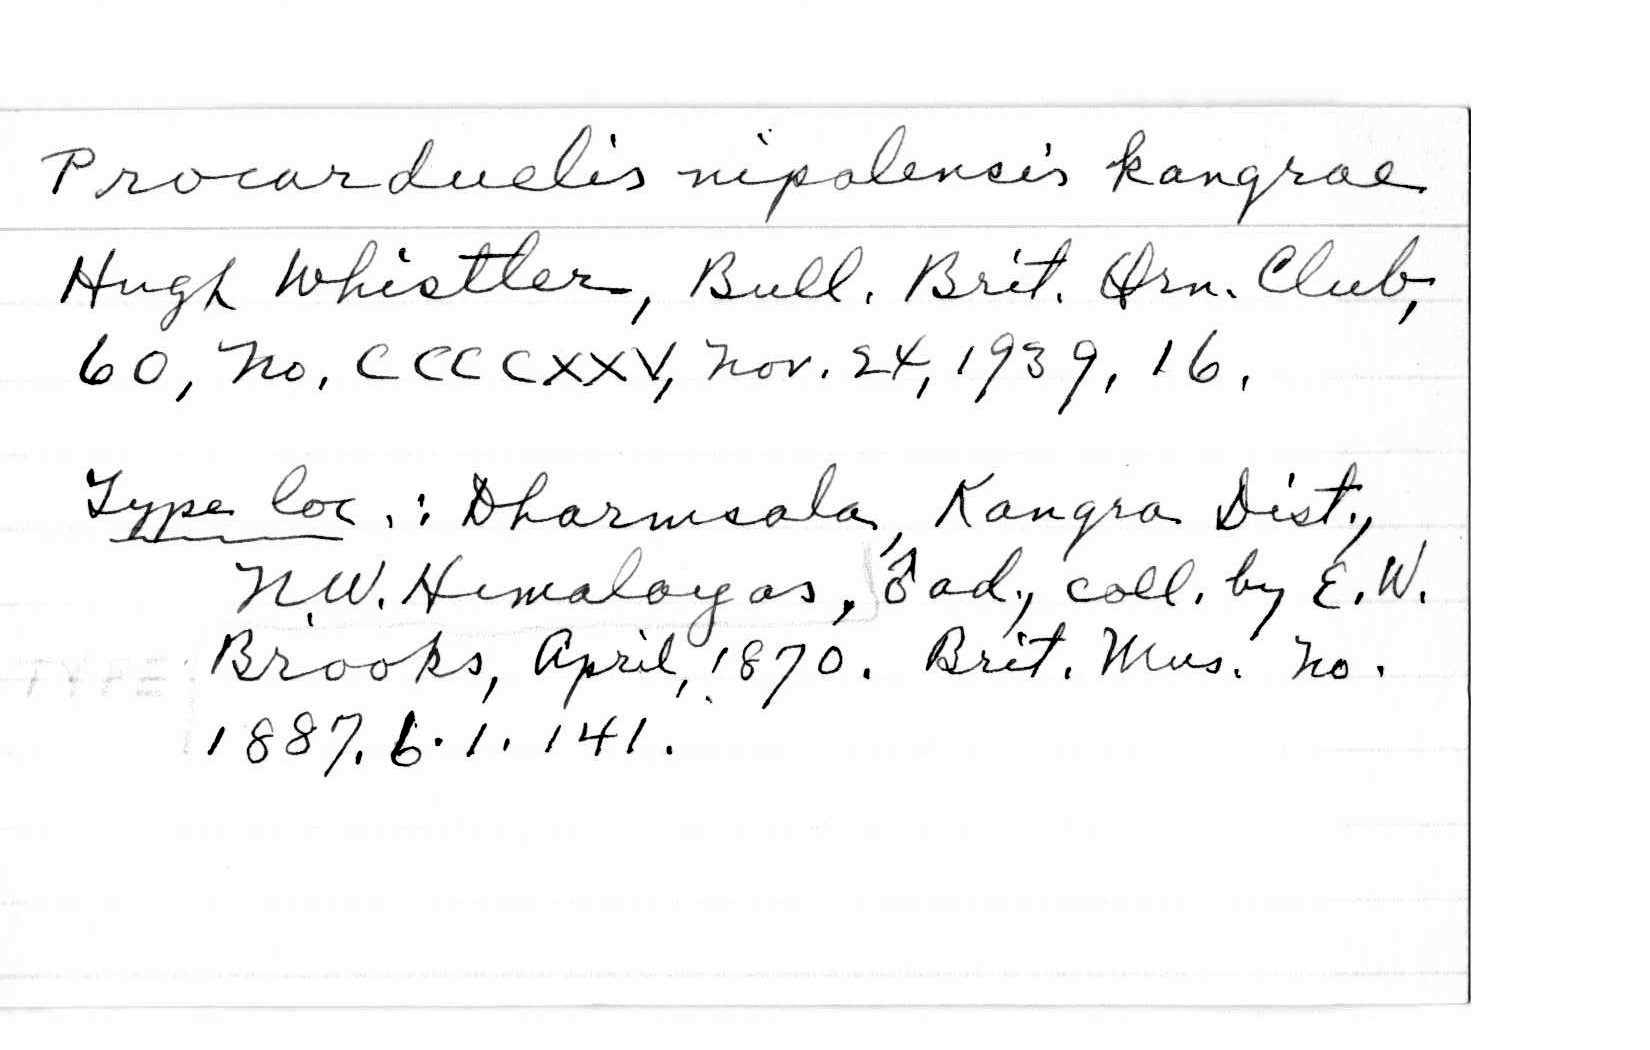 Procarduelis nipalensis kangrae
Hugh Whistler, Bull. Brit. Orn. Club,
60, No. CCCCXXV, Nov. 24, 1939, 16.
Type loc.: Dharmsala, Kangra Dist.,
N.W. Himalayas, ♂ ad., coll. by E.W.
Brooks, April, 1870. Brit. Mus. No.
TYPE
1887.6.1.141.